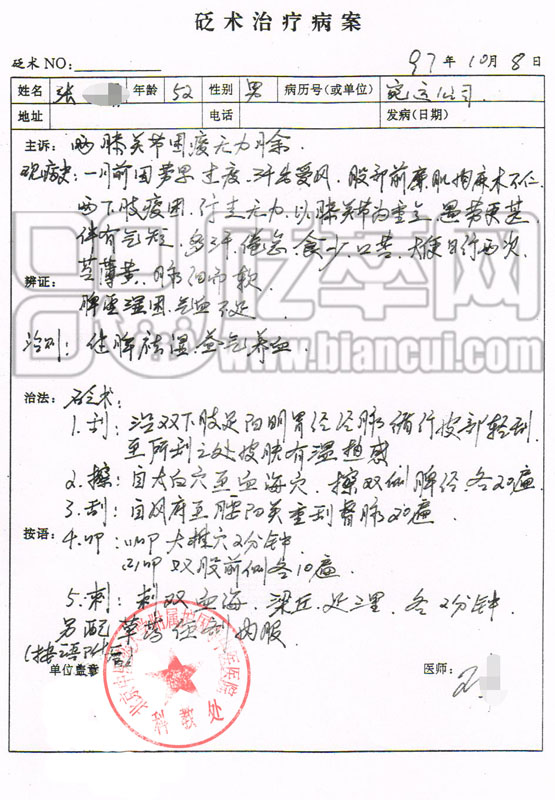 砭术治疗病案
砭术 NO: 97 年 10 月 8 日
姓名 张 年龄 52 性别 男 病历号(或单位) 公司
地址 电话 发病(日期)
主诉: 两膝关节困疲无力月余
现病史: 一月前因劳累过度、汗出受风、股部前廉肌肉麻木不仁
两下肢疲困、行走无力、以膝关节为重、遇劳更甚
伴有气短、多汗、倦怠、食少口苦、大便日行两次
苔薄黄、脉细而软
辨证: 脾虚湿困、气血不足
治则: 健脾祛湿、益气养血
治法: 砭术:
1.刮: 沿双下肢足阳明胃经经脉循行皮部轻刮
至所刮之处皮肤有湿热感
2.擦: 自太白穴至血海穴、擦双侧脾经、各20遍
3.刮: 自风府至腰阳关重刮督脉20遍
按语: 4.叩: (1)叩大椎穴2分钟
(2)叩双股前侧各10遍
5.刺: 刺双血海、梁丘、足三里、各2分钟
另配草药 内服
(按语附后)
单位盖章 医师:
科教处
砭萃网
www.biancui.com